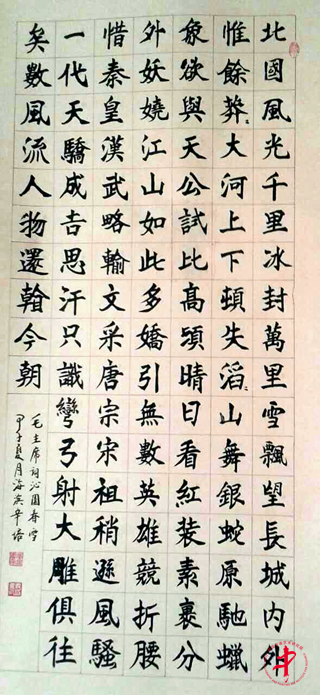 北國風光千里冰封萬里雪飄望長城內外
惟餘莽〻大河上下頓失滔〻山舞銀蛇原馳蠟
象欲與天公試比高湏晴日看紅裝素裹分
外妖嬈江山如此多嬌引無數英雄競折腰
惜秦皇漢武略輸文采唐宗宋祖稍遜風騷
一代天驕成吉思汗只識彎弓射大雕俱往
矣數風流人物還翰今朝
毛主席詞沁園春雪
甲子夏月海